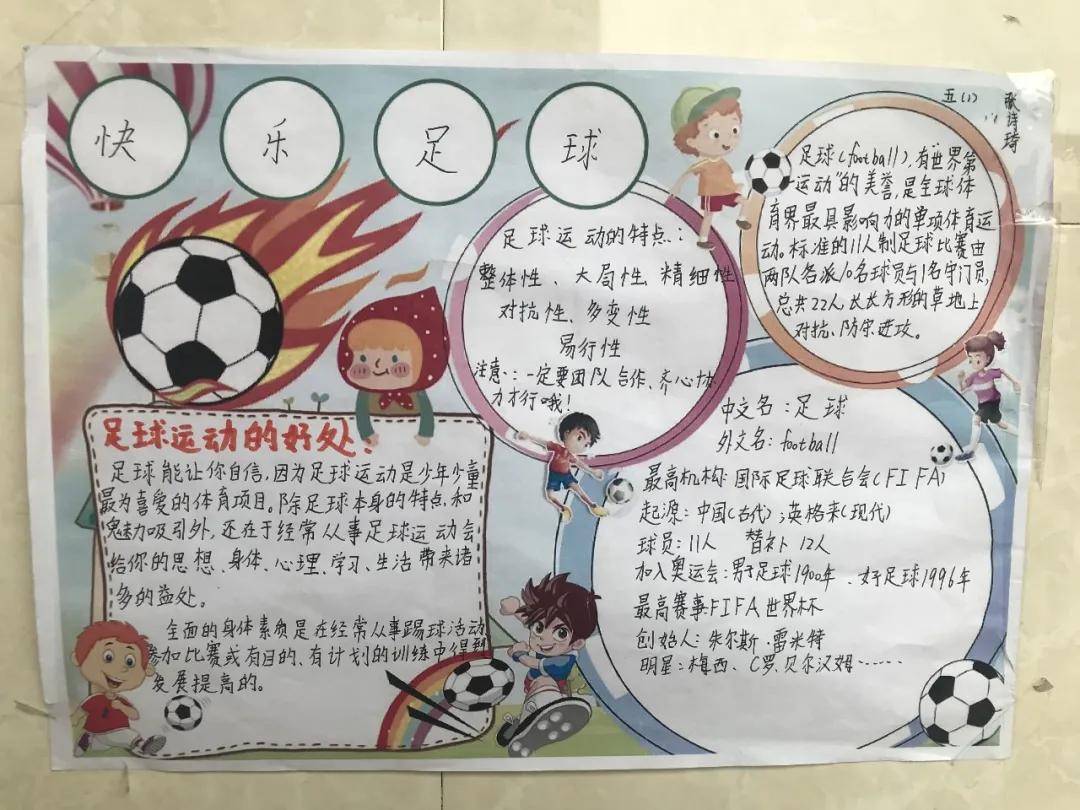 快 乐 足 球
五(1)
张诗琦
足球运动的特点:
整体性、大局性、精细性
对抗性、多变性
易行性
注意:一定要团队合作、齐心协
力才行哦!
足球(football),有"世界第
一运动"的美誉,是全球体
育界最具影响力的单项体育运
动。标准的11人制足球比赛由
两队各派10名球员与1名守门员,
总共22人长长方形的草地上
对抗、防守进攻。
足球运动的好处:
足球能让你自信,因为足球运动是少年少童
最为喜爱的体育项目。除足球本身的特点和
魅力吸引外,还在于经常从事足球运动会
给你的思想、身体、心理、学习、生活带来诸
多的益处。
全面的身体素质是在经常从事踢球活动
参加比赛或有目的、有计划的训练中得到
发展提高的。
中文名:足球
外文名:football
最高机构:国际足球联合会(FIFA)
起源:中国(古代);英格来(现代)
球员:11人 替补12人
加入奥运会:男子足球1900年、女子足球1996年
最高赛事FIFA世界杯
创始人:朱尔斯·雷米特
明星:梅西、C罗、贝尔汉姆……